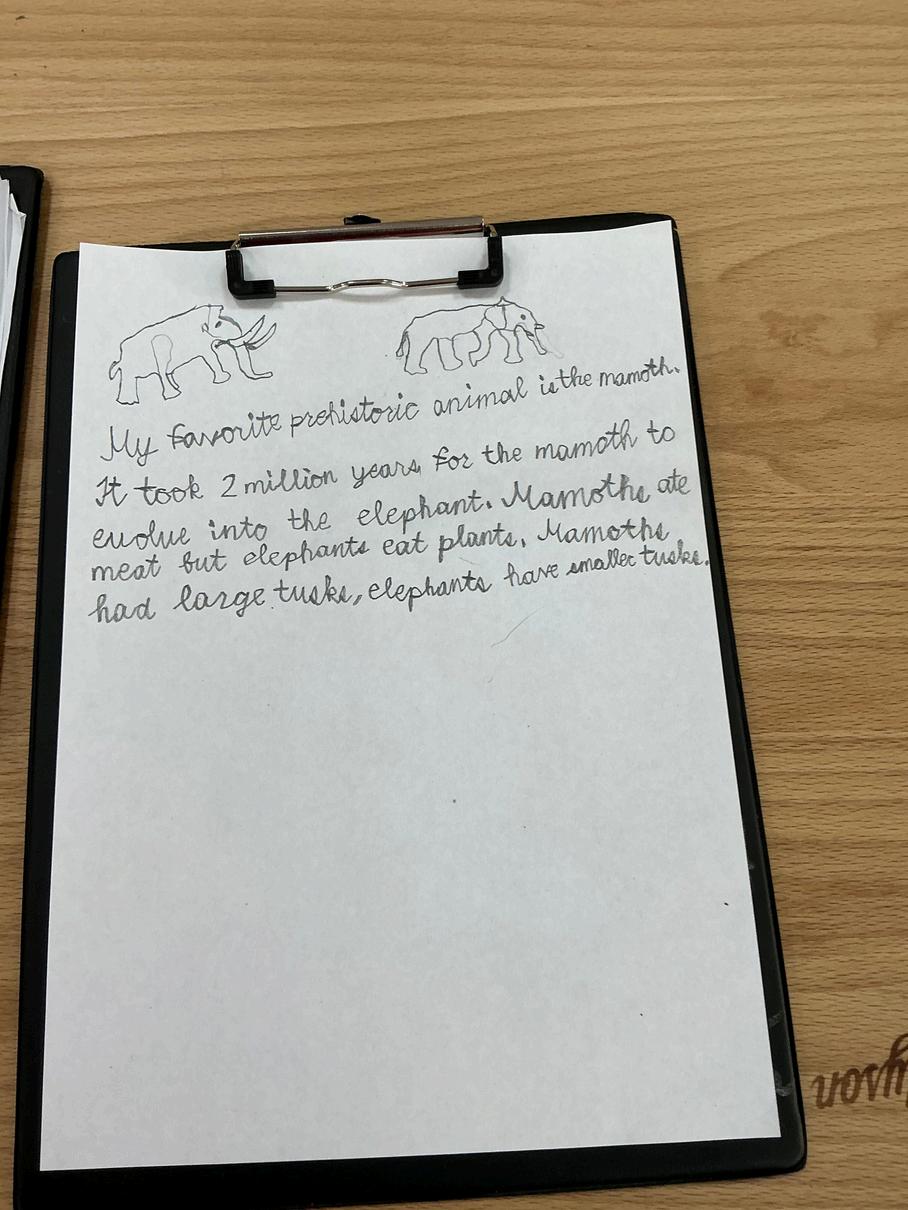 My favorite prehistoric animal is the mamoth.
It took 2 million years for the mamoth to
evolve into the elephant. Mamoths ate
meat but elephants eat plants. Mamoths
had large tusks, elephants have smaller tusks.